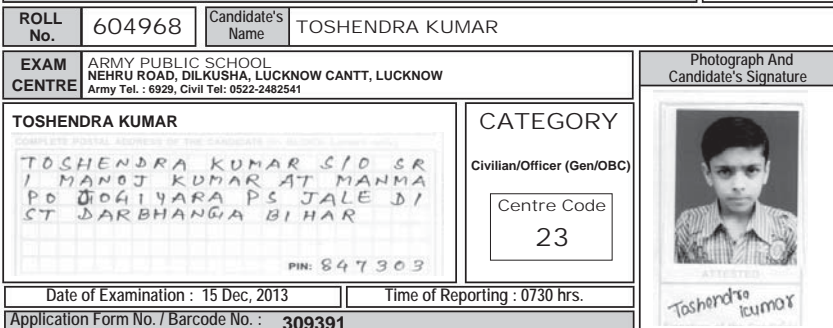 ROLL No. 604968 Candidate's Name TOSHENDRA KUMAR
EXAM CENTRE
ARMY PUBLIC SCHOOL
NEHRU ROAD, DILKUSHA, LUCKNOW CANTT, LUCKNOW
Army Tel. : 6929, Civil Tel: 0522-2482541
Photograph And
Candidate's Signature
TOSHENDRA KUMAR
COMPLETE POSTAL ADDRESS OF THE CANDIDATE
TOSHENDRA KUMAR S/O SR
I MANOJ KUMAR AT MANMA
PO JOGIYARA PS JALE DI
ST DARBHANGA BIHAR
PIN: 847303
CATEGORY
Civilian/Officer (Gen/OBC)
Centre Code
23
ATTESTED
Toshendra Kumar
Date of Examination : 15 Dec, 2013 Time of Reporting : 0730 hrs.
Application Form No. / Barcode No. : 309391